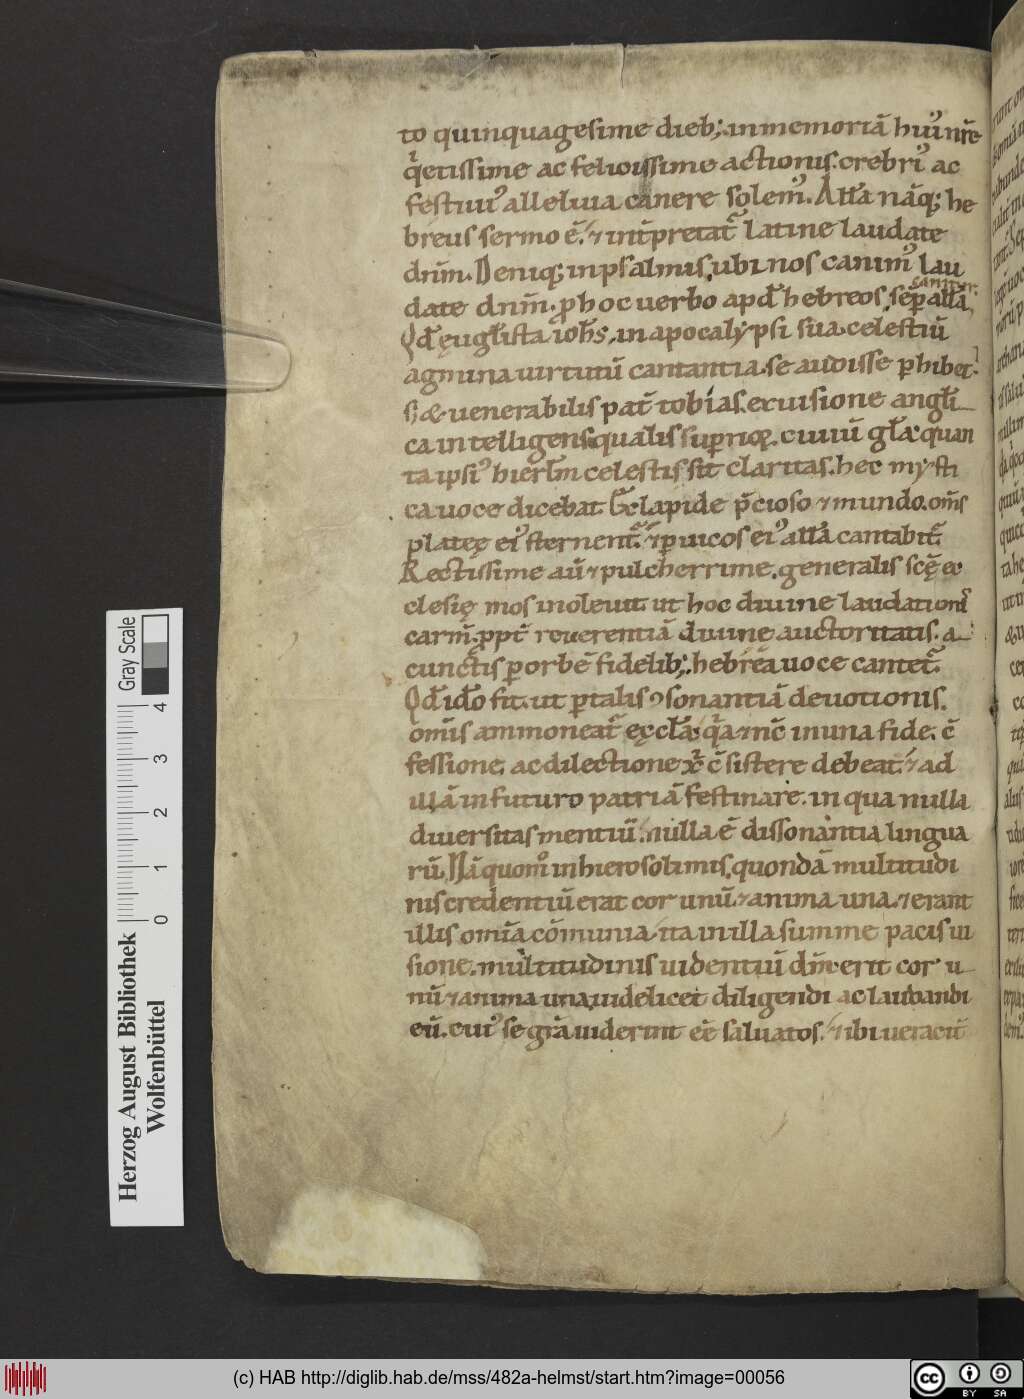 to quinquagesime dieb;. in memoriā huiꝰ nr̄e
qͥetissime ac felicissime actionis. crebriꝰ ac
festiuiꝰ alleluia canere solemꝰ. All'a nāq; he
breus sermo ē. ⁊ int̄pretat̄ latine laudate
dnm̄. Deniq; in psalmis, ubi nos canimꝰ lau
date dnm̄. ꝓ hoc uerbo apd' hebreos, sēꝑ all'ā
canitur.
Qd' ęuglista ioh's, in apocalypsi sua celestiū
agmina uirtutū cantantia. se audisse ꝑhibet.
S; & uenerabilis pat̄ tobias. ex uisione angli
ca intelligens. qualis suꝑnoꝝ. ciuiū gl'a: quan
ta ipsiꝰ hierl'm celestis sit claritas. hec mysti
ca uoce dicebat. Ex lapide p̄cioso ⁊ mundo. om̄s
platee eiꝰ sternent̄. ⁊ ꝑ uicos eiꝰ all'a cantabit̄.
Rectissime aū ⁊ pulcherrime. generalis scę̄ ec
clesię mos inoleuit. ut hoc diuine laudationis
carm̄. ꝓpt̄ reuerentiā diuine auctoritatis. a
cunctis ꝑ orbē fidelib;. hebrea uoce cantet̄.
Qd' idō fit. ut ꝑ talis ꝯsonantiā deuotionis.
om̄is ammoneat̄ ęccl'a. qͥa ⁊ nc̄ in una fidei cō
fessione. ac dilectione xp̄i cōsistere debeat. ⁊ ad
illā in futuro patriā festinare. in qua nulla
diuersitas mentiū. nulla ē dissonantia lingua
rū. Nā quomͦ in hierosolimis, quondā multitudi
nis credentiū erat cor unū. ⁊ anima una. ⁊ erant
illis omīa cōmunia. ita in illa summe pacis ui
sione. multitudinis uidentiū dm̄. erit cor u
nū ⁊ anima una. uidelicet diligendi ac laudandi
eū. cuiꝰ se grā uiderint eē saluatos. ⁊ ibi ueraciꝰ
Herzog August Bibliothek
Wolfenbüttel
Gray Scale
0 1 2 3 4
(c) HAB http://diglib.hab.de/mss/482a-helmst/start.htm?image=00056
cc BY SA